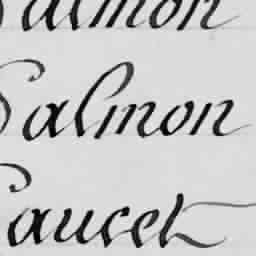 Salmon
Salmon
Saucet